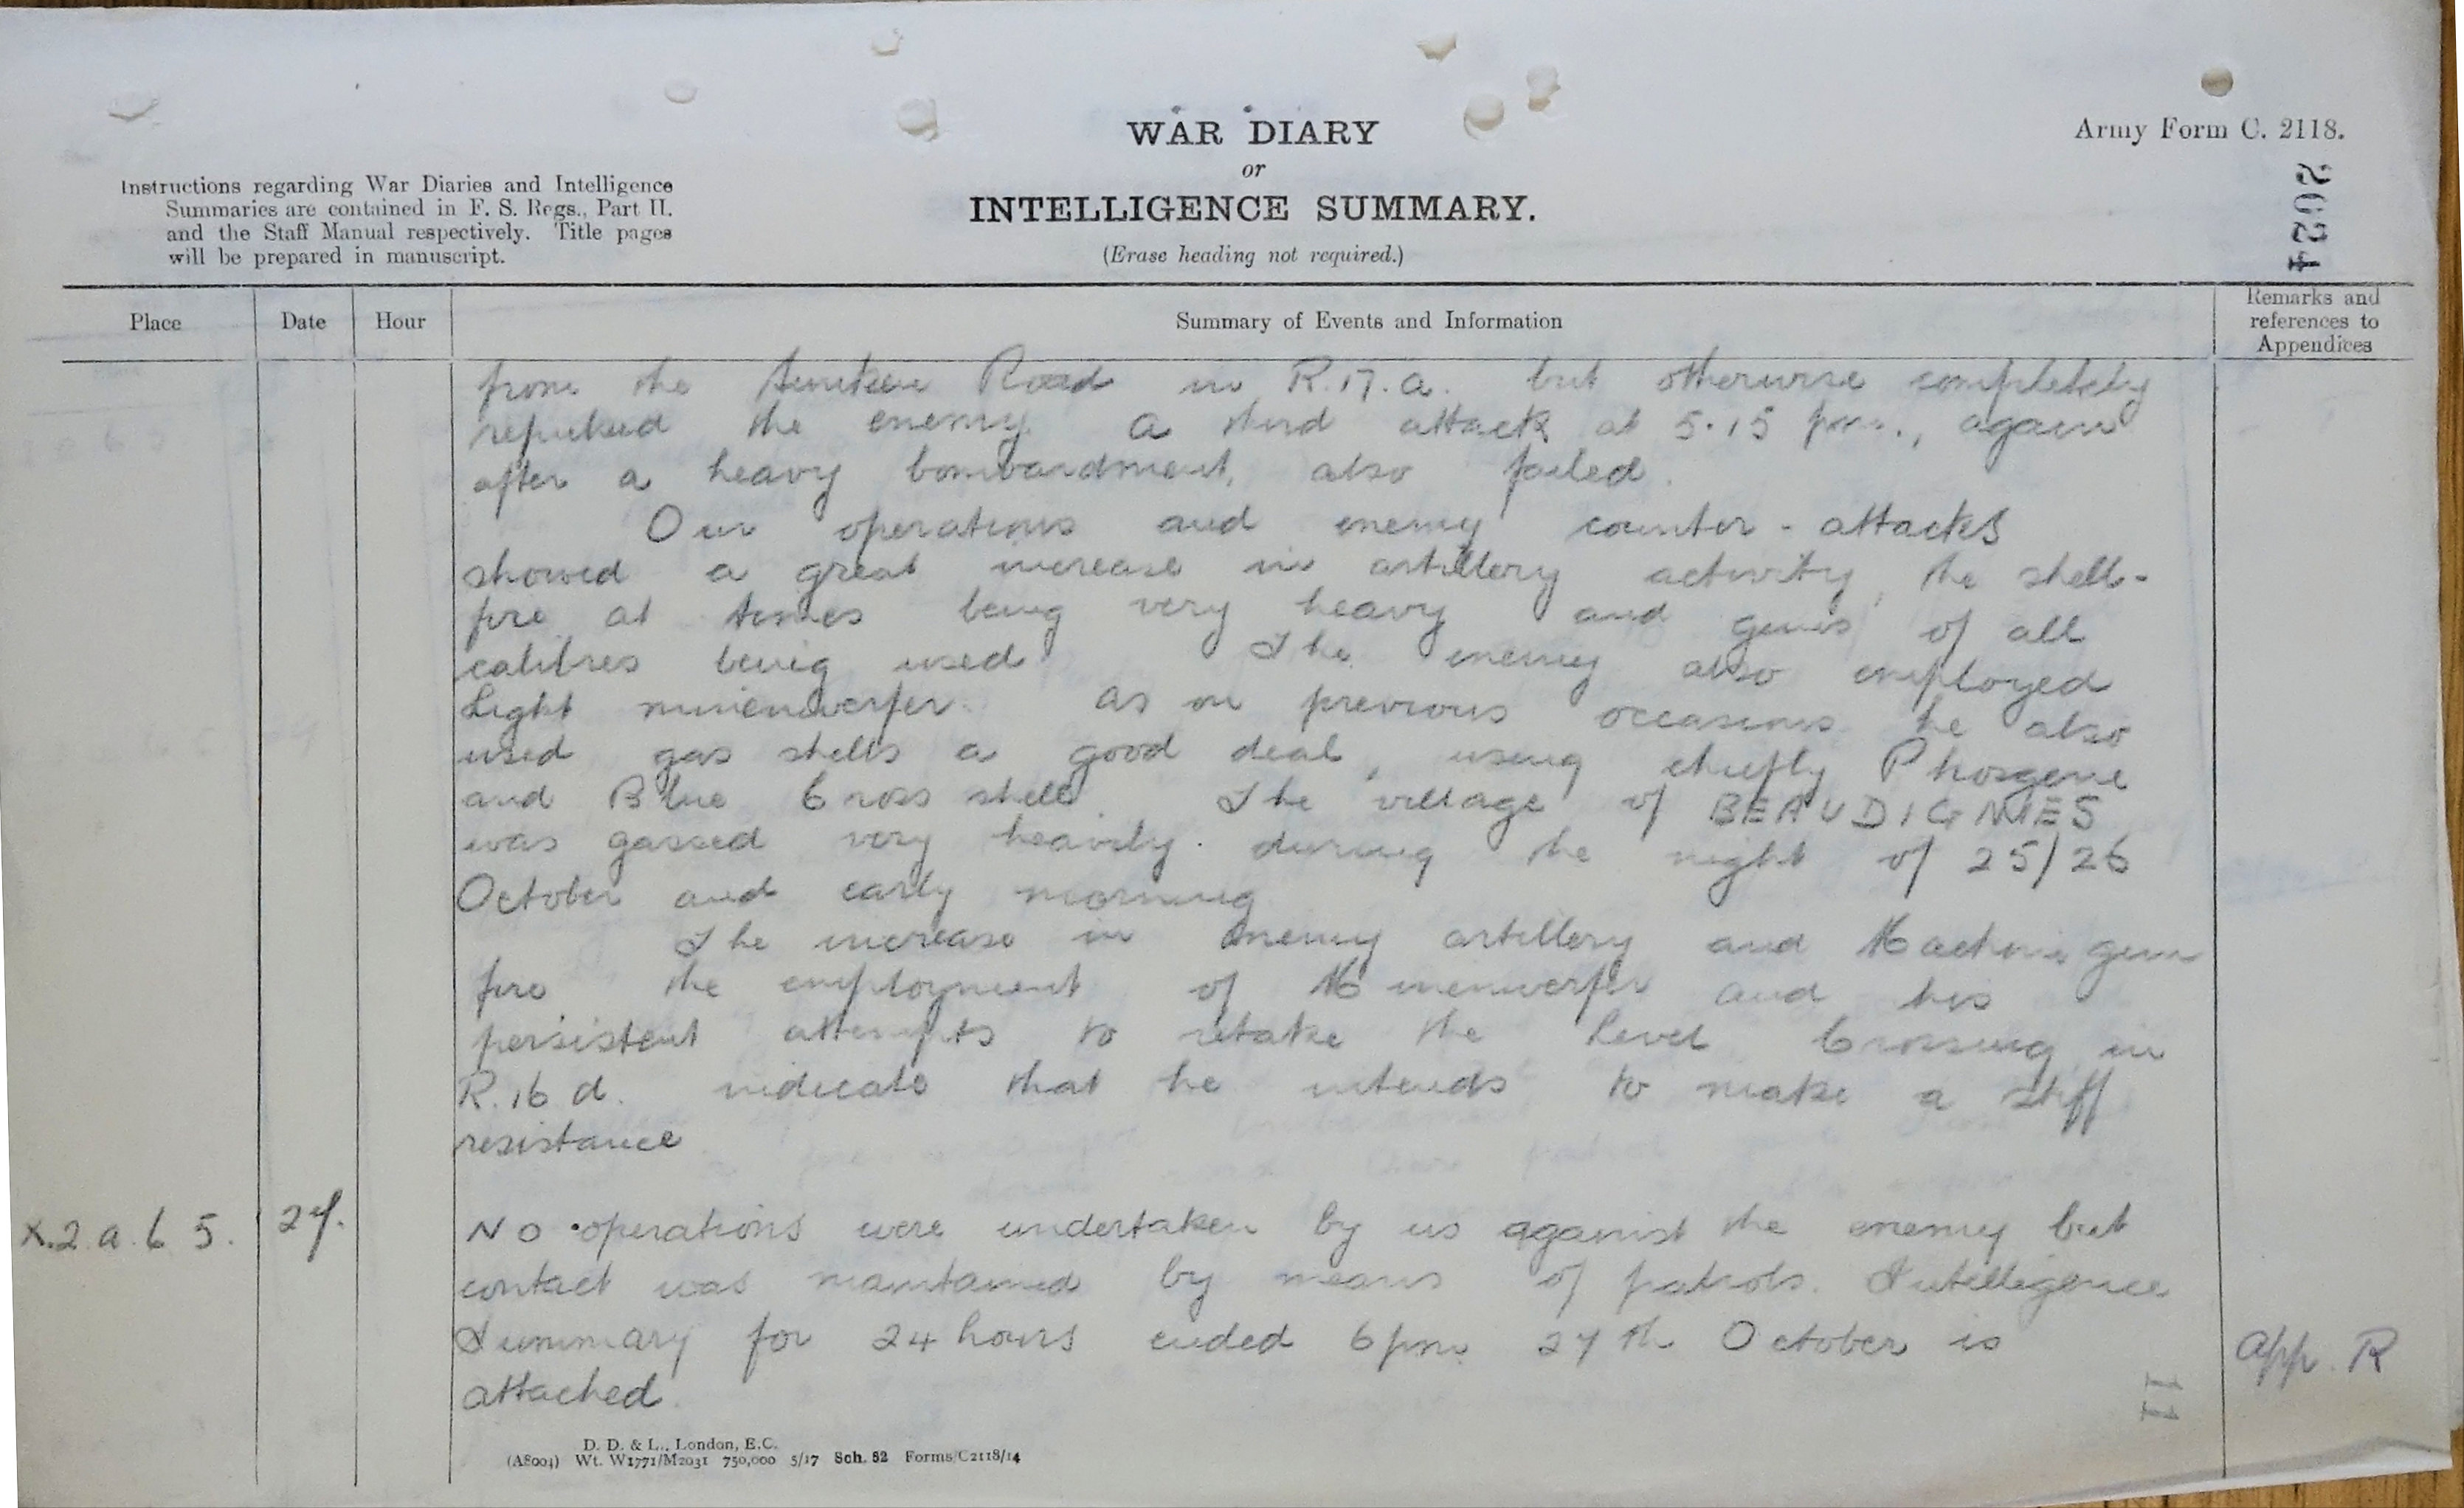 WAR DIARY
or
INTELLIGENCE SUMMARY.
(Erase heading not required.)
Army Form C. 2118.
Instructions regarding War Diaries and Intelligence
Summaries are contained in F. S. Regs., Part II.
and the Staff Manual respectively. Title pages
will be prepared in manuscript.
Place
Date
Hour
Summary of Events and Information
Remarks and
references to
Appendices
from the Sunken Road in R.17.a. but otherwise completely
repulsed the enemy. A third attack at 5.15 pm., again
after a heavy bombardment, also failed.
Our operations and enemy counter-attacks
showed a great increase in artillery activity, the shell-
fire at times being very heavy and guns of all
calibres being used. The enemy also employed
Light minenwerfer. As on previous occasions he also
used gas shells a good deal, using chiefly Phosgene
and Blue Cross shell. The village of BEAUDIGNIES
was gassed very heavily. during the night of 25/26
October and early morning
The increase in enemy artillery and Machine gun
fire the employment of Minenwerfer and his
persistent attempts to retake the Level Crossing in
R.16 d. indicate that he intends to make a stiff
resistance
X.2.a.6 5.
27.
No operations were undertaken by us against the enemy but
contact was maintained by means of patrols. Intelligence
Summary for 24 hours ended 6 pm. 27th October is
attached.
App. R
11
D. D. & L., London, E.C.
(A8004) Wt. W1771/M2031 750,000 5/17 Sch. 52 Forms/C2118/14